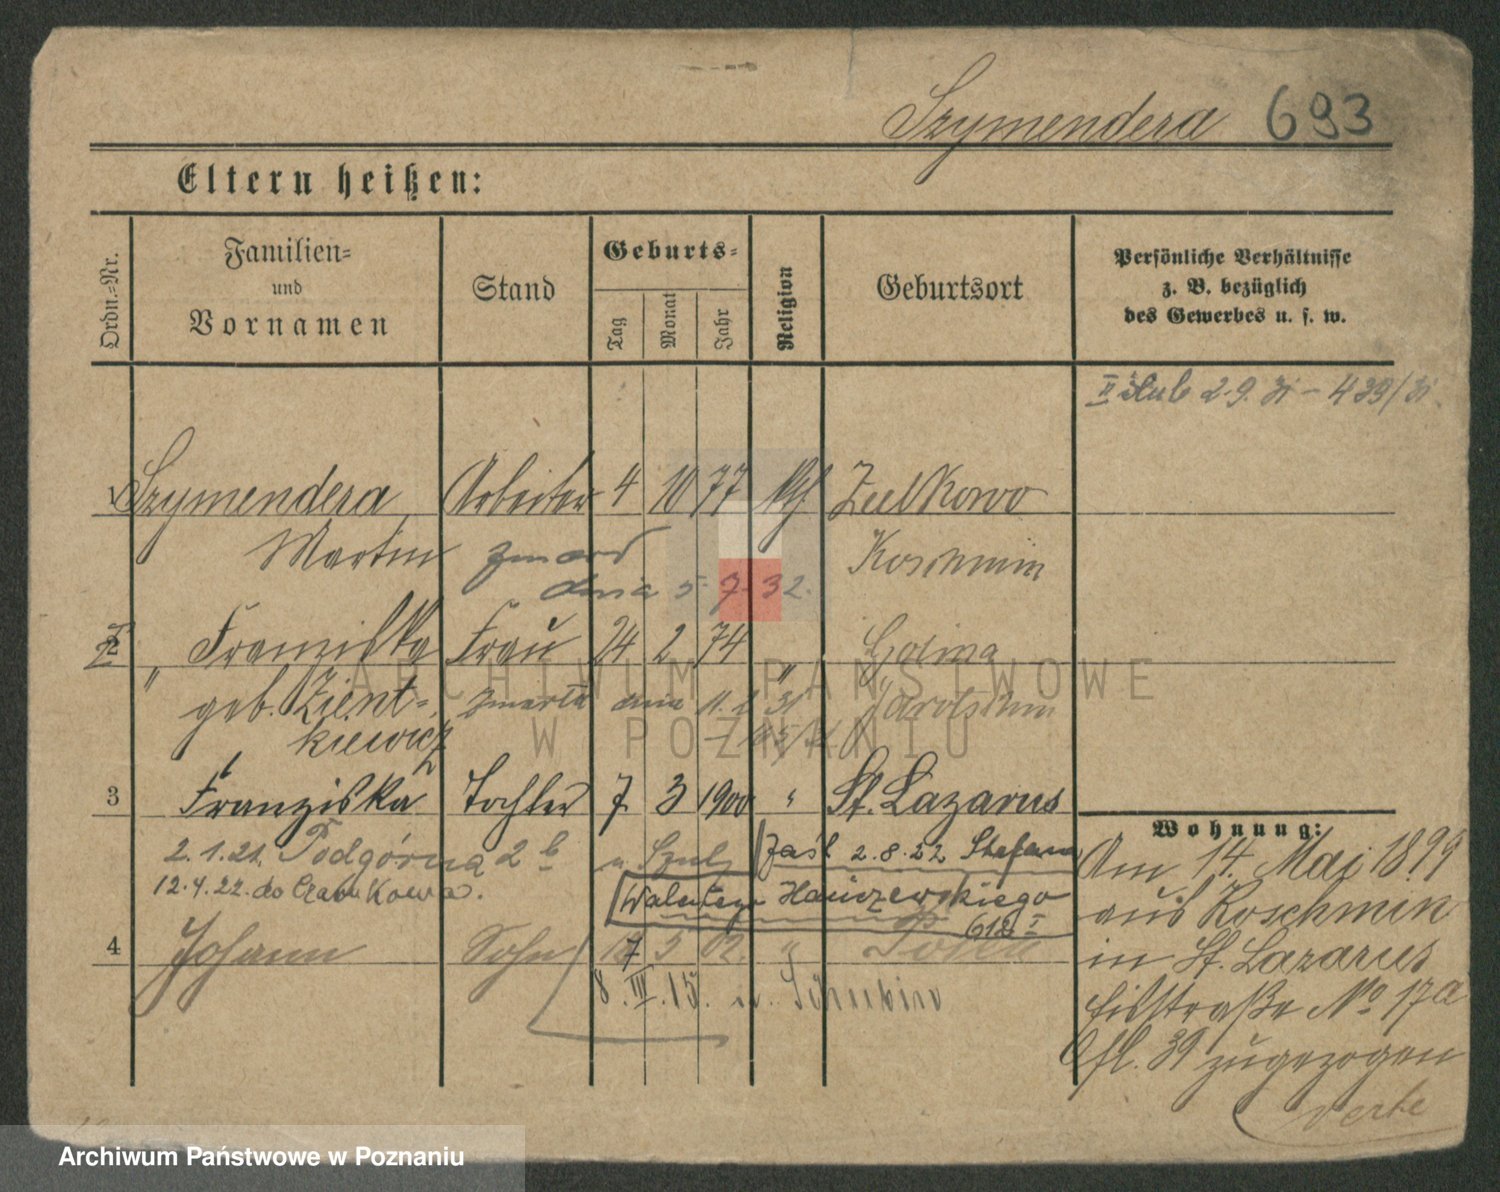 Szymendera 693
Eltern heißen:
Ordn.=Nr.
Familien=
und
Vornamen
Stand
Geburts=
Tag
Monat
Jahr
Religion
Geburtsort
Persönliche Verhältnisse
z. B. bezüglich
des Gewerbes u. s. w.
II 2.9.31 - 439/31
1 Szymendera Arbeiter 4 10 77 Zielkowo
Martin zmarł Koschmin
dnia 5.7.32.
2 " Franziska Frau 24 2 74 " Golina
geb. Zient= zmarła dnia 11. 2 31 Jarotschin
kiewicz
3 Franziska Tochter 7 3 1900 " St. Lazarus
Wohnung:
2.1.21. Podgórna 2b u Szulz zaśl 2.8.22 Stefana
12.4.22. do Czarnkowa. Walentego Hańczewskiego
612 I
4 Johann Sohn 5 02. " Posen
8.III.15. n. Schubin
Am 14. Mai 1899
aus Koschmin
in St. Lazarus
Eilstraße No 17a
Ofl. 39 zugezogen
ARCHIWUM PAŃSTWOWE
W POZNANIU
Archiwum Państwowe w Poznaniu